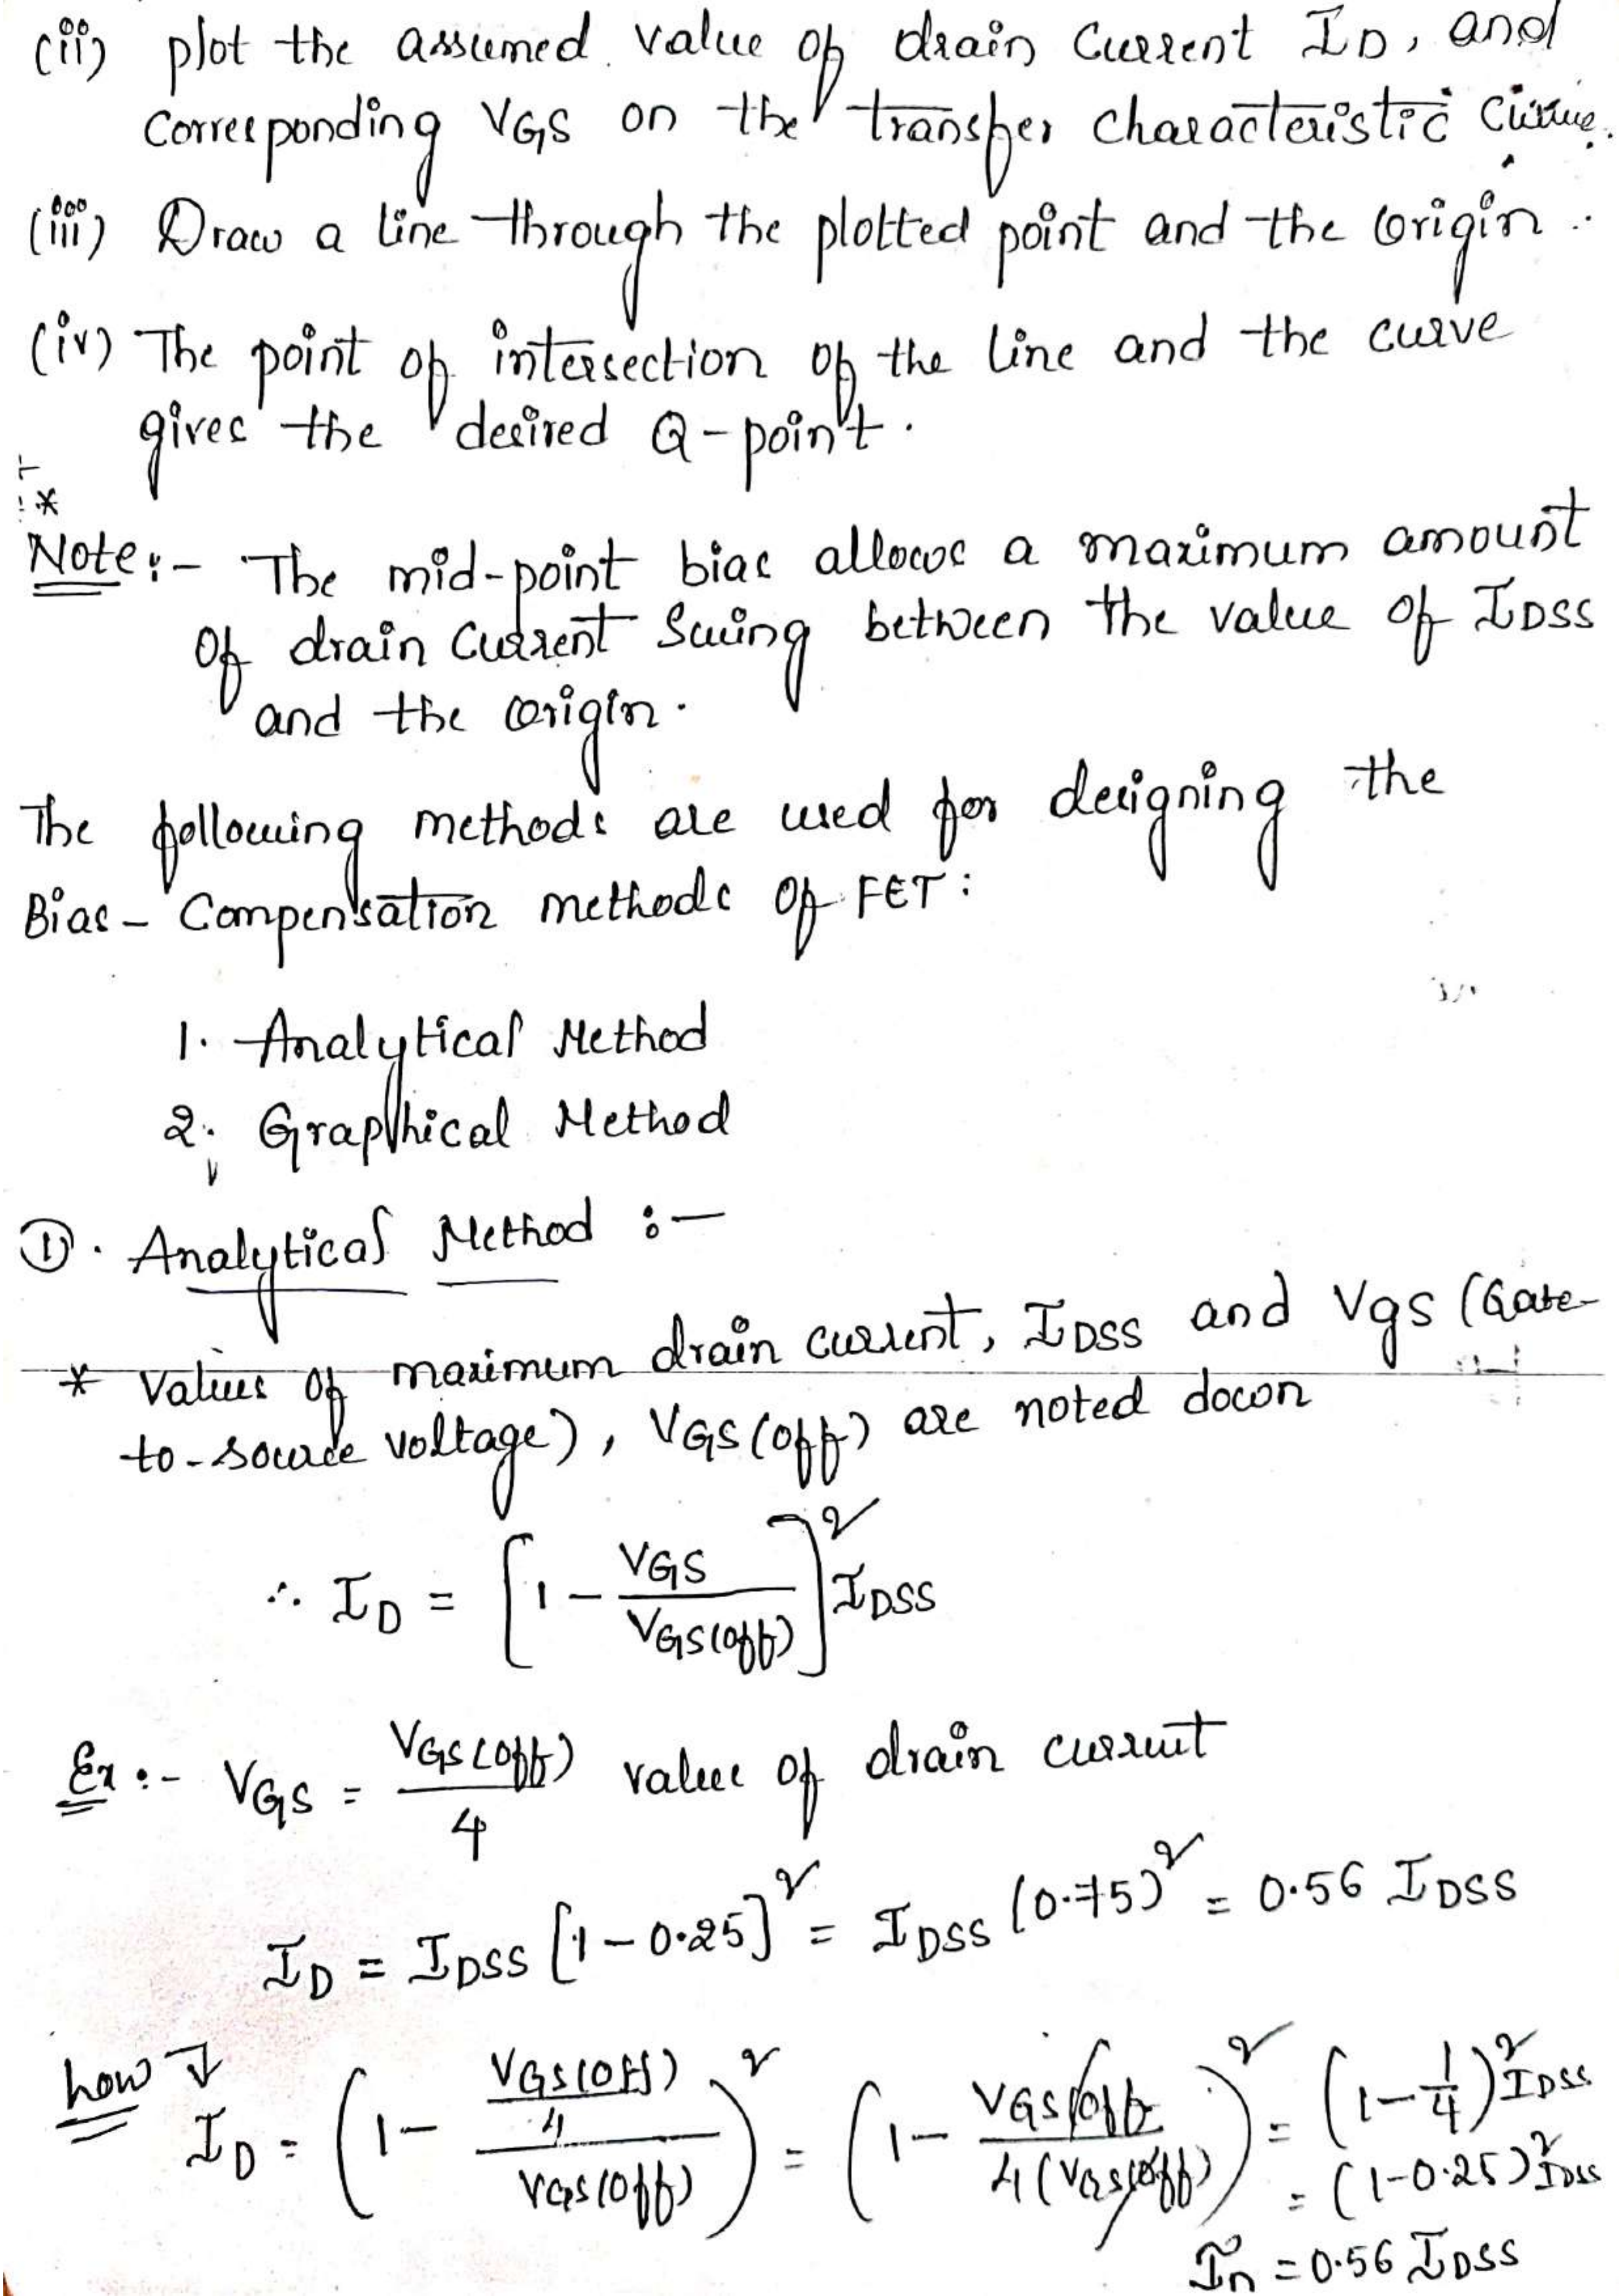 (ii) plot the assumed value of drain Current ID, and
Corresponding VGS on the transfer characteristic Curve.
(iii) Draw a line through the plotted point and the Origin.
(iv) The point of intersection of the line and the curve
gives the desired Q-point.
*
Note:- The mid-point bias allows a maximum amount
of drain Current Swing between the value of IDSS
and the origin.
The following methods are used for designing the
Bias-Compensation methods of FET:
1. Analytical Method
2. Graphical Method
①. Analytical Method :-
* Values of maximum drain current, IDSS and Vgs (Gate-
to-source voltage), VGS(off) are noted down
∴ ID = [1 - VGS / VGS(off)]² IDSS
Ex:- VGS = VGS(off) / 4 value of drain current
ID = IDSS [1 - 0.25]² = IDSS (0.75)² = 0.56 IDSS
how ↓
ID = (1 - (VGS(off) / 4) / VGS(off))² = (1 - VGS(off) / 4(VGS(off)))² = (1 - 1/4)² IDSS
= (1-0.25)² IDSS
ID = 0.56 IDSS